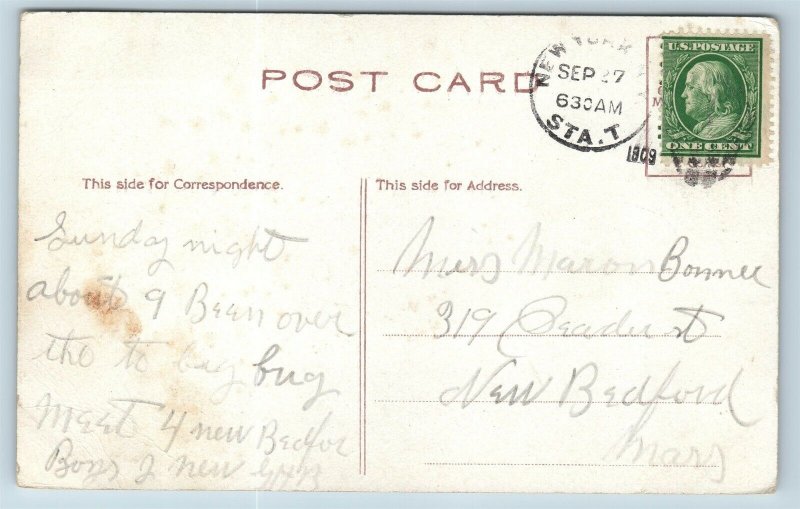 POST CARD
NEW YORK
SEP 27
630AM
STA. T
1909
U.S. POSTAGE
ONE CENT
This side for Correspondence.
This side for Address.
Sunday night
about 9 Been over
the to big bug
MEET 4 new Bedfor
Boys 2 new
Miss Marion Bonnee
319 st
New Bedford
Mass